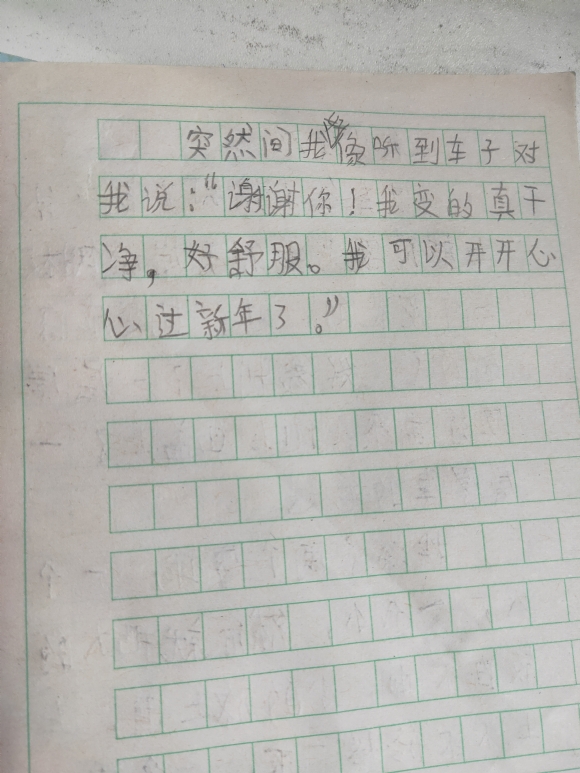 突然间我好像听到车子对
我说:“谢谢你!我变的真干
净,好舒服。我可以开开心
心过新年了。”